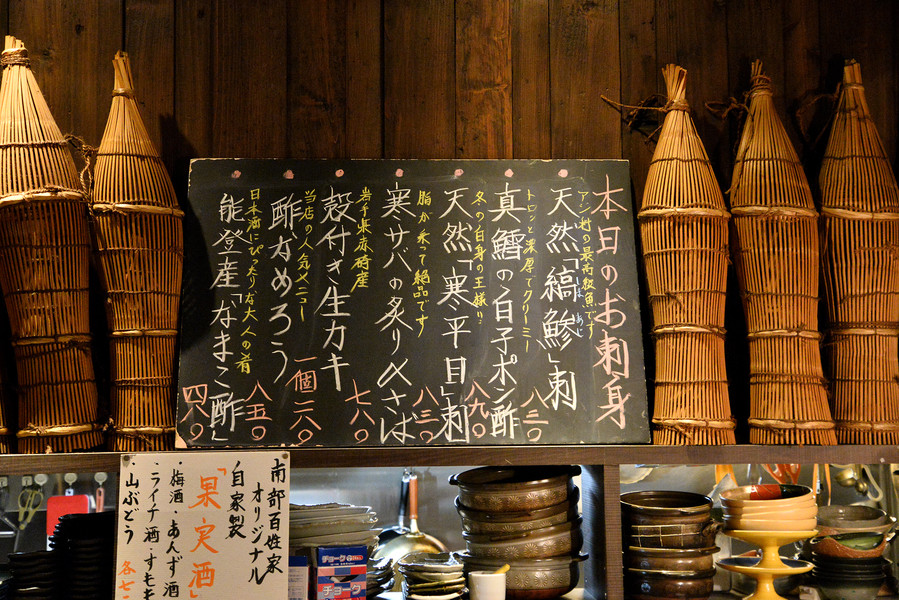 本日のお刺身
アジ科の最高級魚です
天然「縞鯵」刺
しま あじ
八三〇
トロッと濃厚でクリーミー
真鱈の白子ポン酢
八九〇
冬の白身の王様!!
天然「寒平目」刺
八三〇
脂が乗って絶品です
寒サバの炙り〆さば
七八〇
岩手県広崎産
殻付き生カキ
一個二八〇
当店の人気メニュー
酢なめろう
八五〇
日本酒にぴったりな大人の肴
能登産「なまこ酢」
四八〇
南部百姓家
オリジナル
自家製
「果実酒」
・梅酒・あんず酒
・ライチ酒・すもも
・山ぶどう
各七
チョーク
チョーク